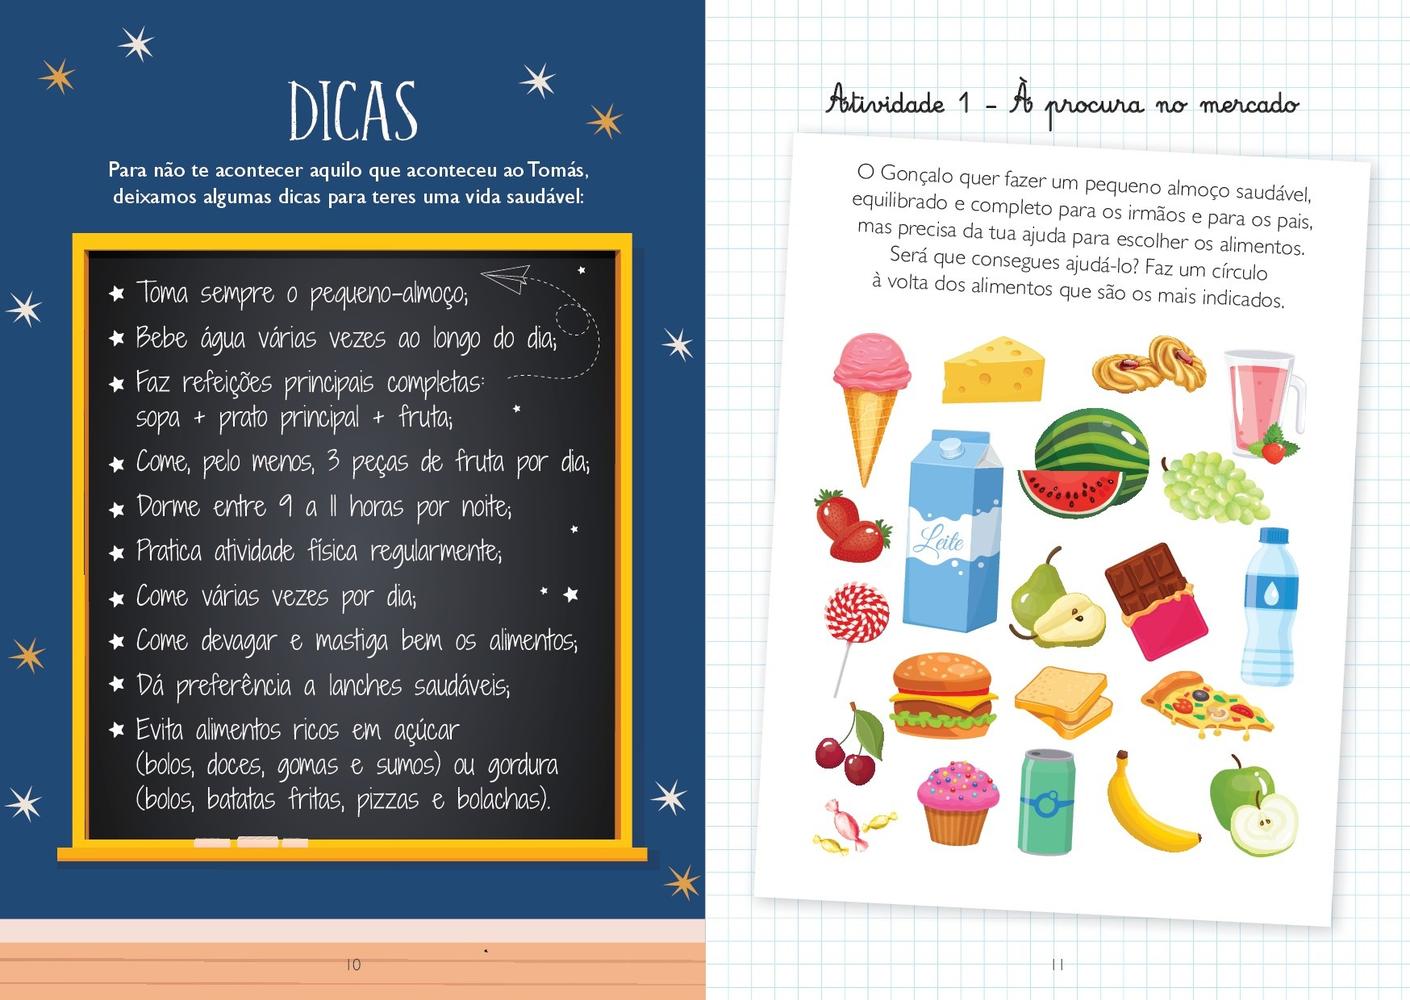 DICAS
Para não te acontecer aquilo que aconteceu ao Tomás,
deixamos algumas dicas para teres uma vida saudável:
Toma sempre o pequeno-almoço;
Bebe água várias vezes ao longo do dia;
Faz refeições principais completas:
sopa + prato principal + fruta;
Come, pelo menos, 3 peças de fruta por dia;
Dorme entre 9 a 11 horas por noite;
Pratica atividade física regularmente;
Come várias vezes por dia;
Come devagar e mastiga bem os alimentos;
Dá preferência a lanches saudáveis;
Evita alimentos ricos em açúcar
(bolos, doces, gomas e sumos) ou gordura
(bolos, batatas fritas, pizzas e bolachas).
10
Atividade 1 - À procura no mercado
O Gonçalo quer fazer um pequeno almoço saudável,
equilibrado e completo para os irmãos e para os pais,
mas precisa da tua ajuda para escolher os alimentos.
Será que consegues ajudá-lo? Faz um círculo
à volta dos alimentos que são os mais indicados.
Leite
11